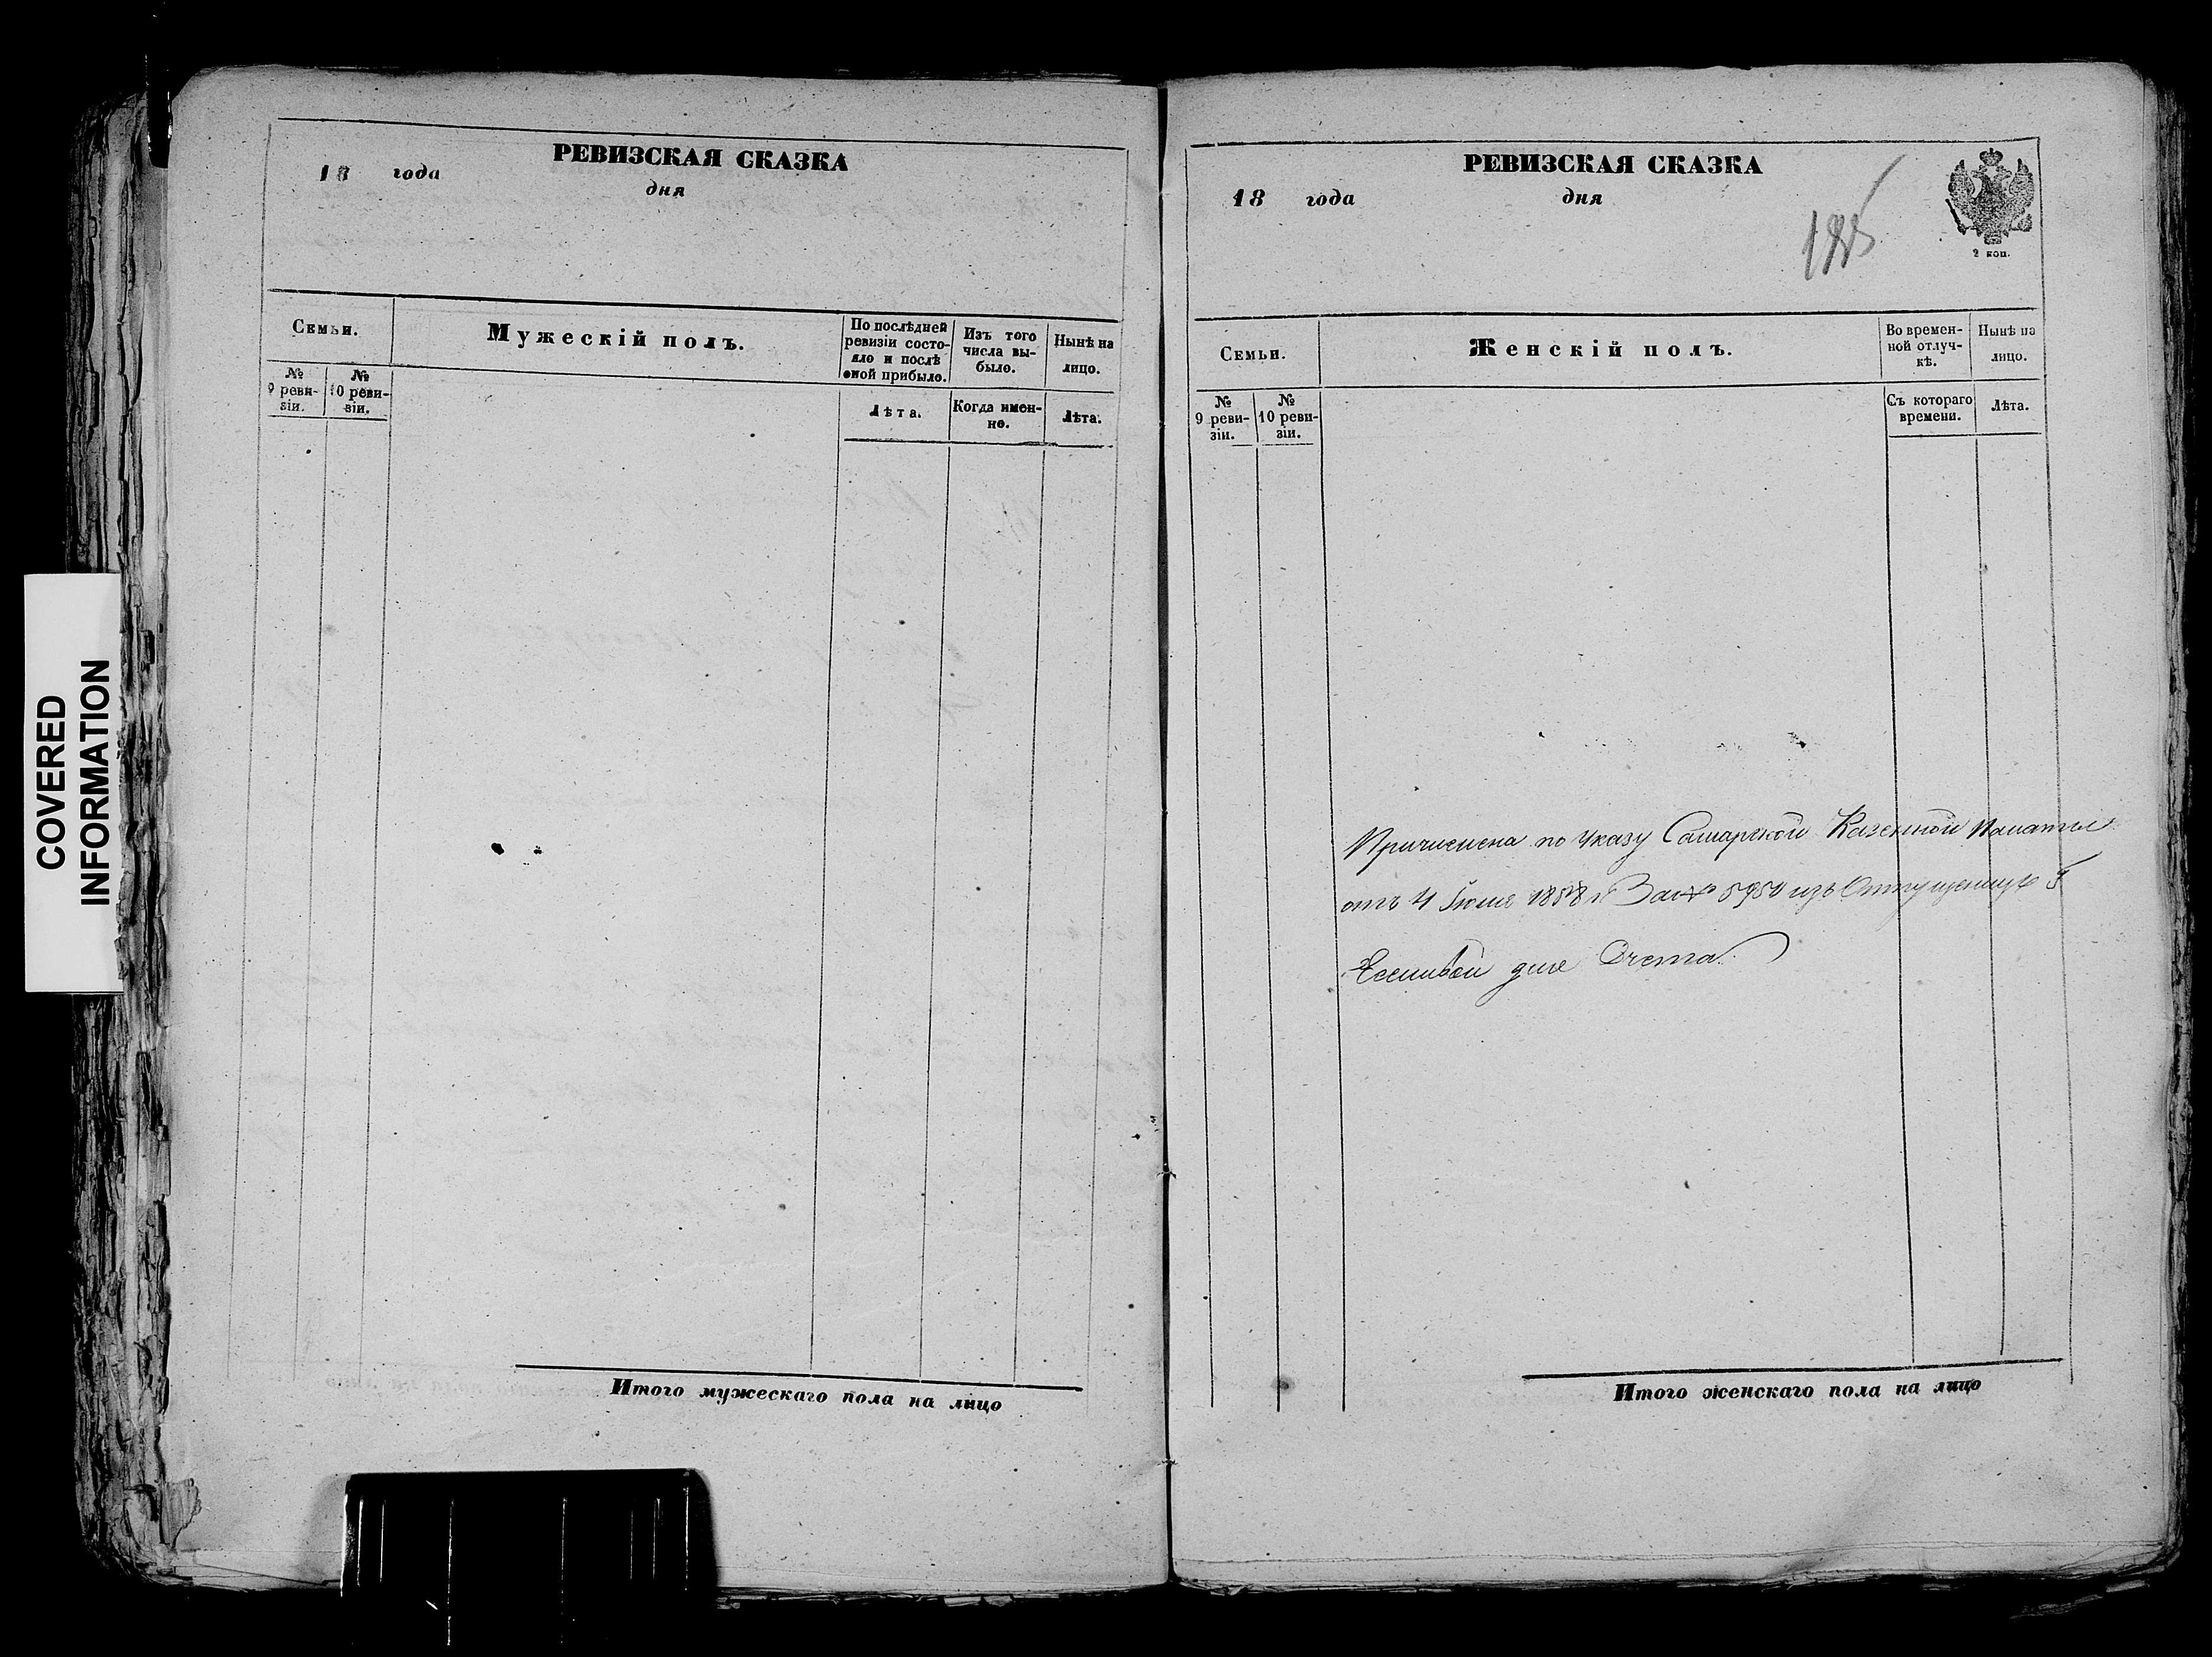 РЕВИЗСКАЯ СКАЗКА
18 года дня
Семьи.
Мужескій полъ.
По послѣдней ревизіи состояло и послѣ оной прибыло.
Изъ того числа выбыло.
Нынѣ на лицо.
№ 9 ревизіи.
№ 10 ревизіи.
Лѣта.
Когда именно.
Лѣта.
Итого мужескаго пола на лицо
РЕВИЗСКАЯ СКАЗКА
18 года дня
2 коп.
Семьи.
Женскій полъ.
Во временной отлучкѣ.
Нынѣ на лицо.
№ 9 ревизіи.
№ 10 ревизіи.
Съ котораго времени.
Лѣта.
Причислена по Указу Самарской Казенной Палаты
отъ 4 Іюля 1858 г За № 5950 изъ
для Счета.
Итого женскаго пола на лицо
COVERED
INFORMATION